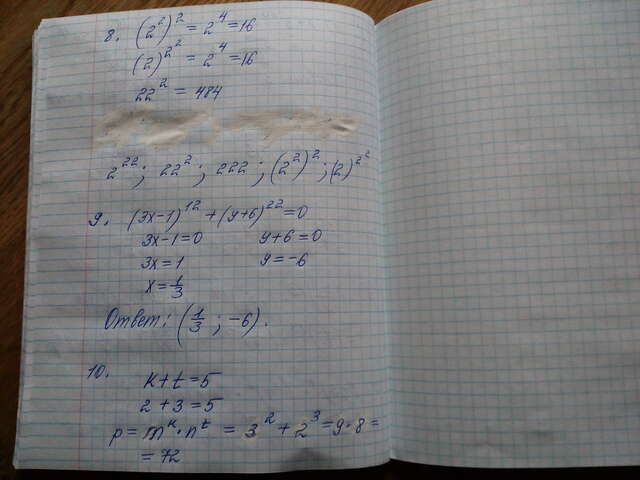 8. (2²)² = 2⁴ = 16
(2)^2² = 2⁴ = 16
22² = 484
2²²; 22²; 222; (2²)²; (2)^2²
9. (3x-1)¹² + (y+6)²² = 0
3x-1=0 y+6=0
3x=1 y=-6
x=1/3
Ответ: (1/3; -6).
10. k+t=5
2+3=5
p=m^k·n^t = 3²+2³=9·8=
=72